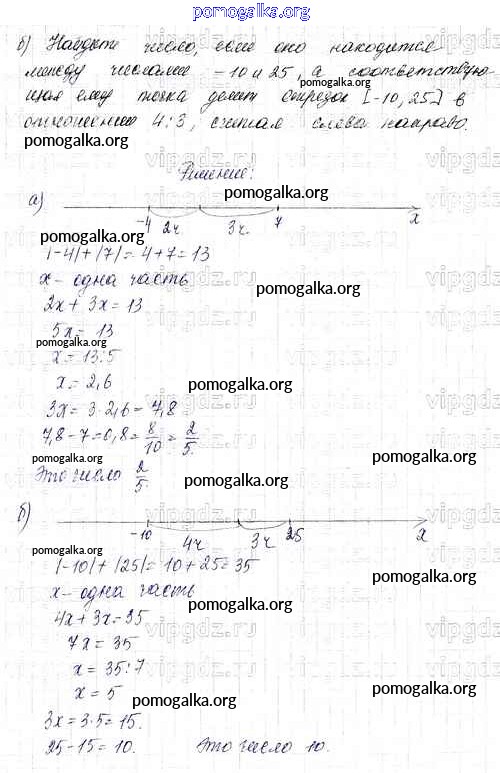 pomogalka.org
б) Найдите число, если оно находится
между числами -10 и 25, а соответствую-
pomogalka.org
щая ему точка делит отрезок [-10, 25] в
отношении 4:3, считая слева направо.
pomogalka.org
Решение:
pomogalka.org
а)
-4 2ч 3ч 7 x
pomogalka.org
|-4|+|7|=4+7=13
x - одна часть
pomogalka.org
2x+3x=13
5x=13
pomogalka.org
x=13:5
x=2,6
pomogalka.org
3x=3·2,6=7,8
7,8-7=0,8=8/10=2/5
pomogalka.org
Это число 2/5
pomogalka.org
б)
-10 4ч 3ч 25 x
pomogalka.org
|-10|+|25|=10+25=35
pomogalka.org
x - одна часть
pomogalka.org
4x+3x=35
7x=35
x=35:7
pomogalka.org
x=5
pomogalka.org
3x=3·5=15.
25-15=10. Это число 10.
pomogalka.org
vipgdz.ru